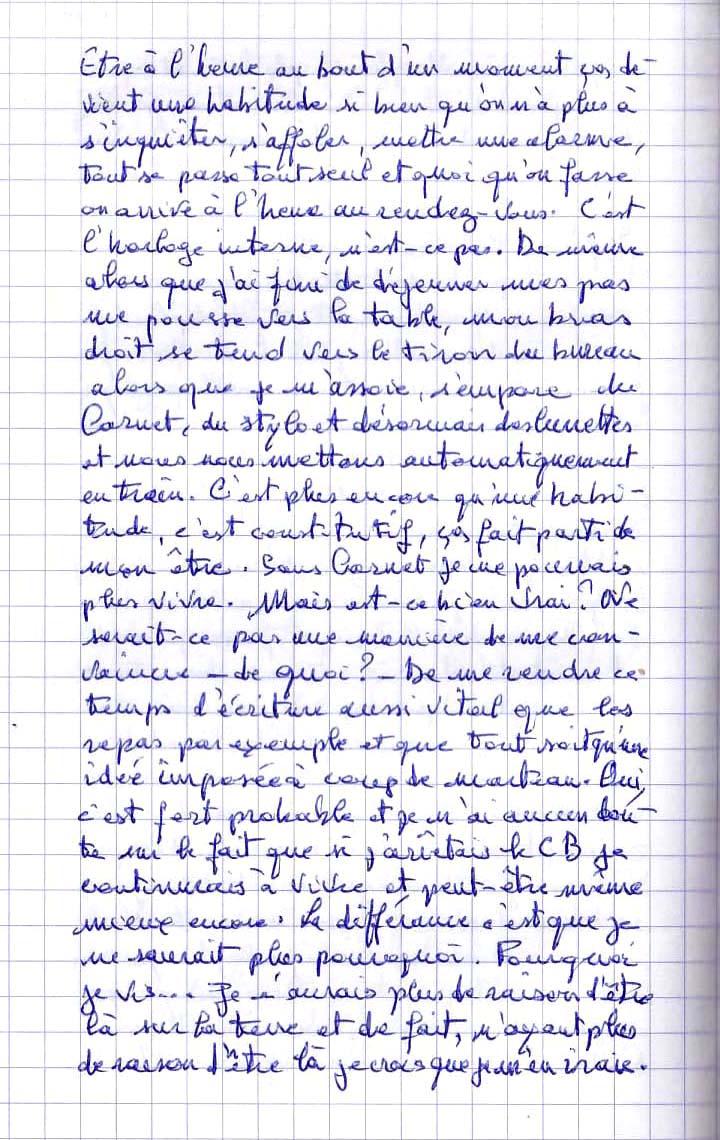 Etre à l'heure au bout d'un moment ças de-
vient une habitude si bien qu'on n'a plus à
s'inquiéter, s'affoler, mettre une alarme,
tout se passe tout seul et quoi qu'on fasse
on arrive à l'heure au rendez-vous. C'est
l'horloge interne, n'est-ce pas. De même
alors que j'ai fini de déjeuner mes pas
me pousse vers la table, mon bras
droit se tend vers le tiroir du bureau
alors que je m'assoie, s'empare du
Carnet, du stylo et désormais des lunettes
et nous nous mettons automatiquement
en train. C'est plus encore qu'une habi-
tude, c'est constitutif, ças fait parti de
mon être. Sans Carnet je ne pourrais
plus vivre. Mais est-ce bien vrai? Ne
serait-ce pas une manière de me con-
vaincre - de quoi? - De me rendre ce
temps d'écriture aussi vital que les
repas par exemple et que tout soit qu'une
idée imposée à coup de marteau. Oui,
c'est fort probable et je n'ai aucun dou-
te sur le fait que si j'arrêtais le CB je
continuerais à vivre et peut-être même
mieux encore. La différance c'est que je
ne saurait plus pourquoi. Pourquoi
je vis... Je n'aurais plus de raison d'être
là sur la terre et de fait, n'ayant plus
de raison d'être là je crois que je m'en irais.